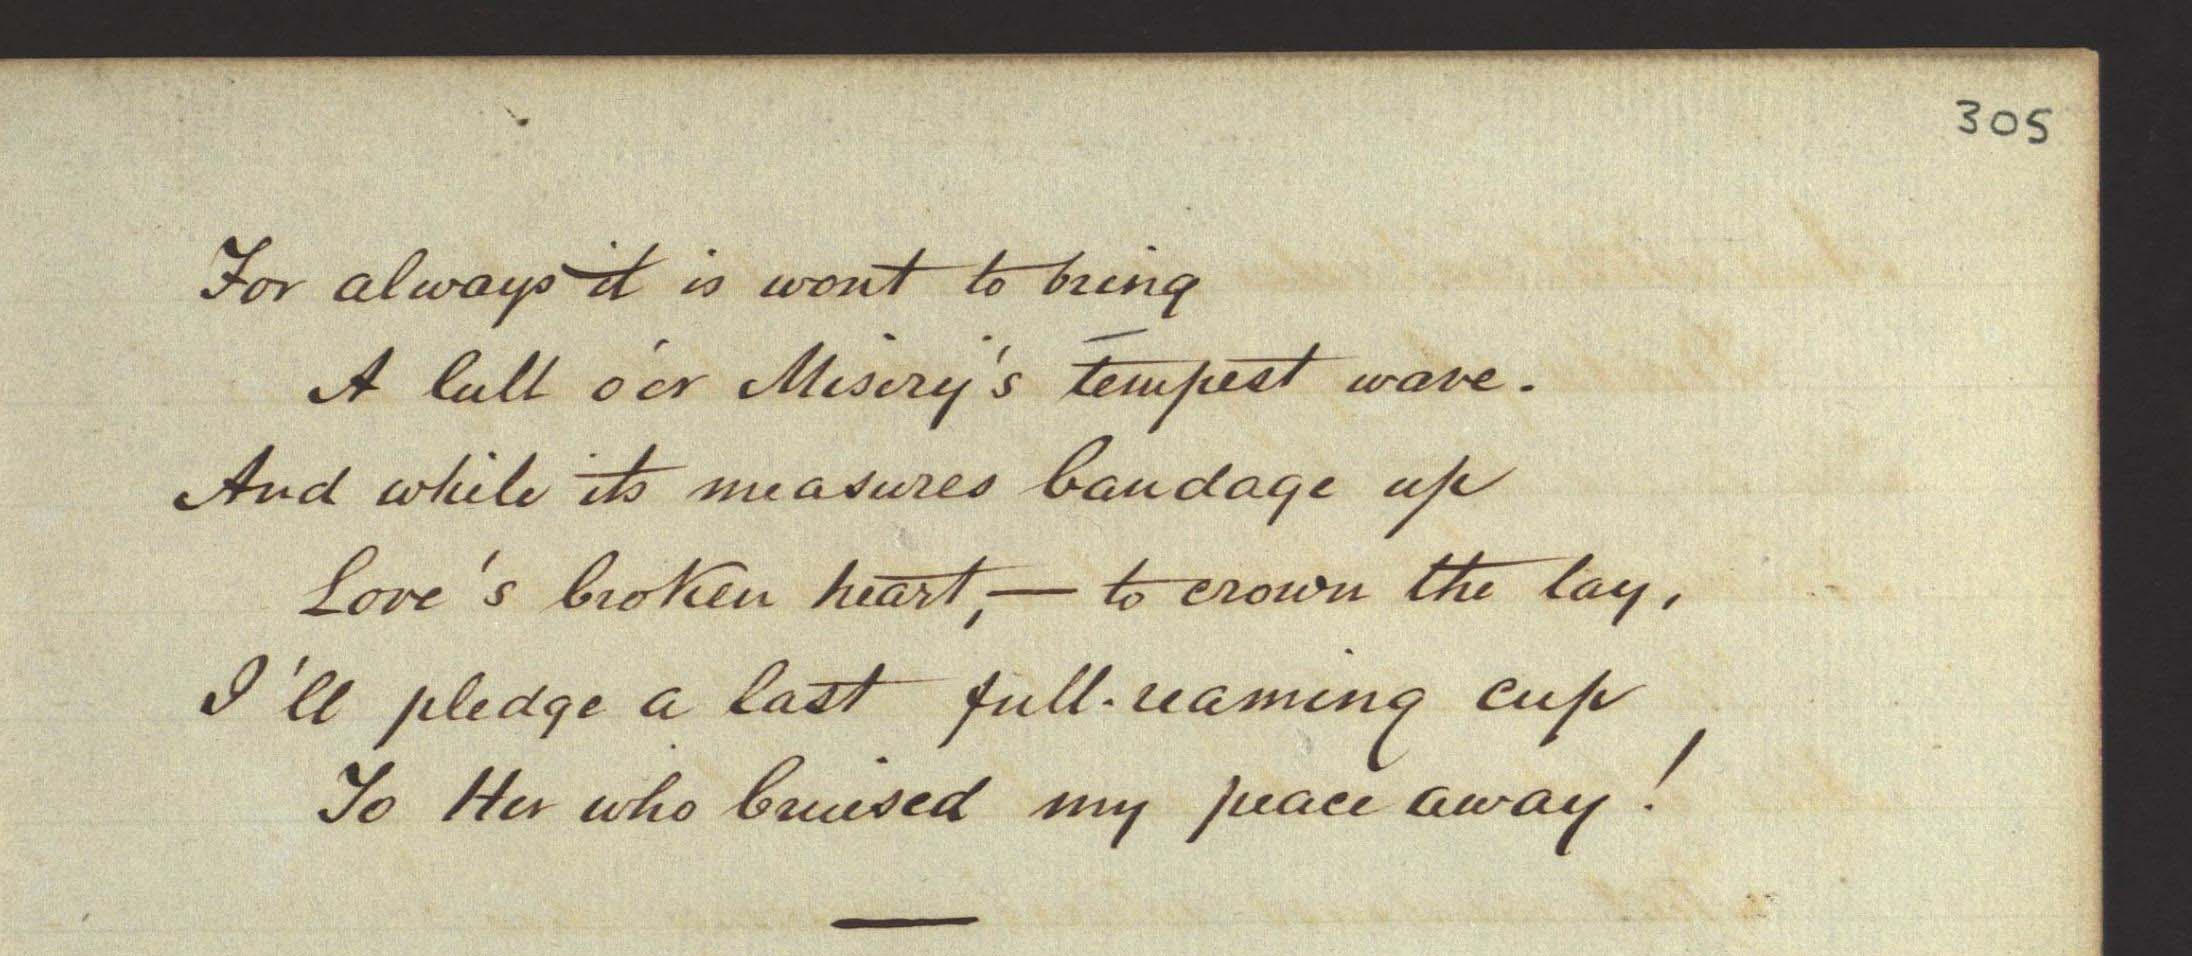 305
For always it is wont to bring
A lull o'er Misery's tempest wave.
And while its measures bandage up
Love's broken heart, — to crown the lay,
I'll pledge a last full-reaming cup
To Her who bruised my peace away!